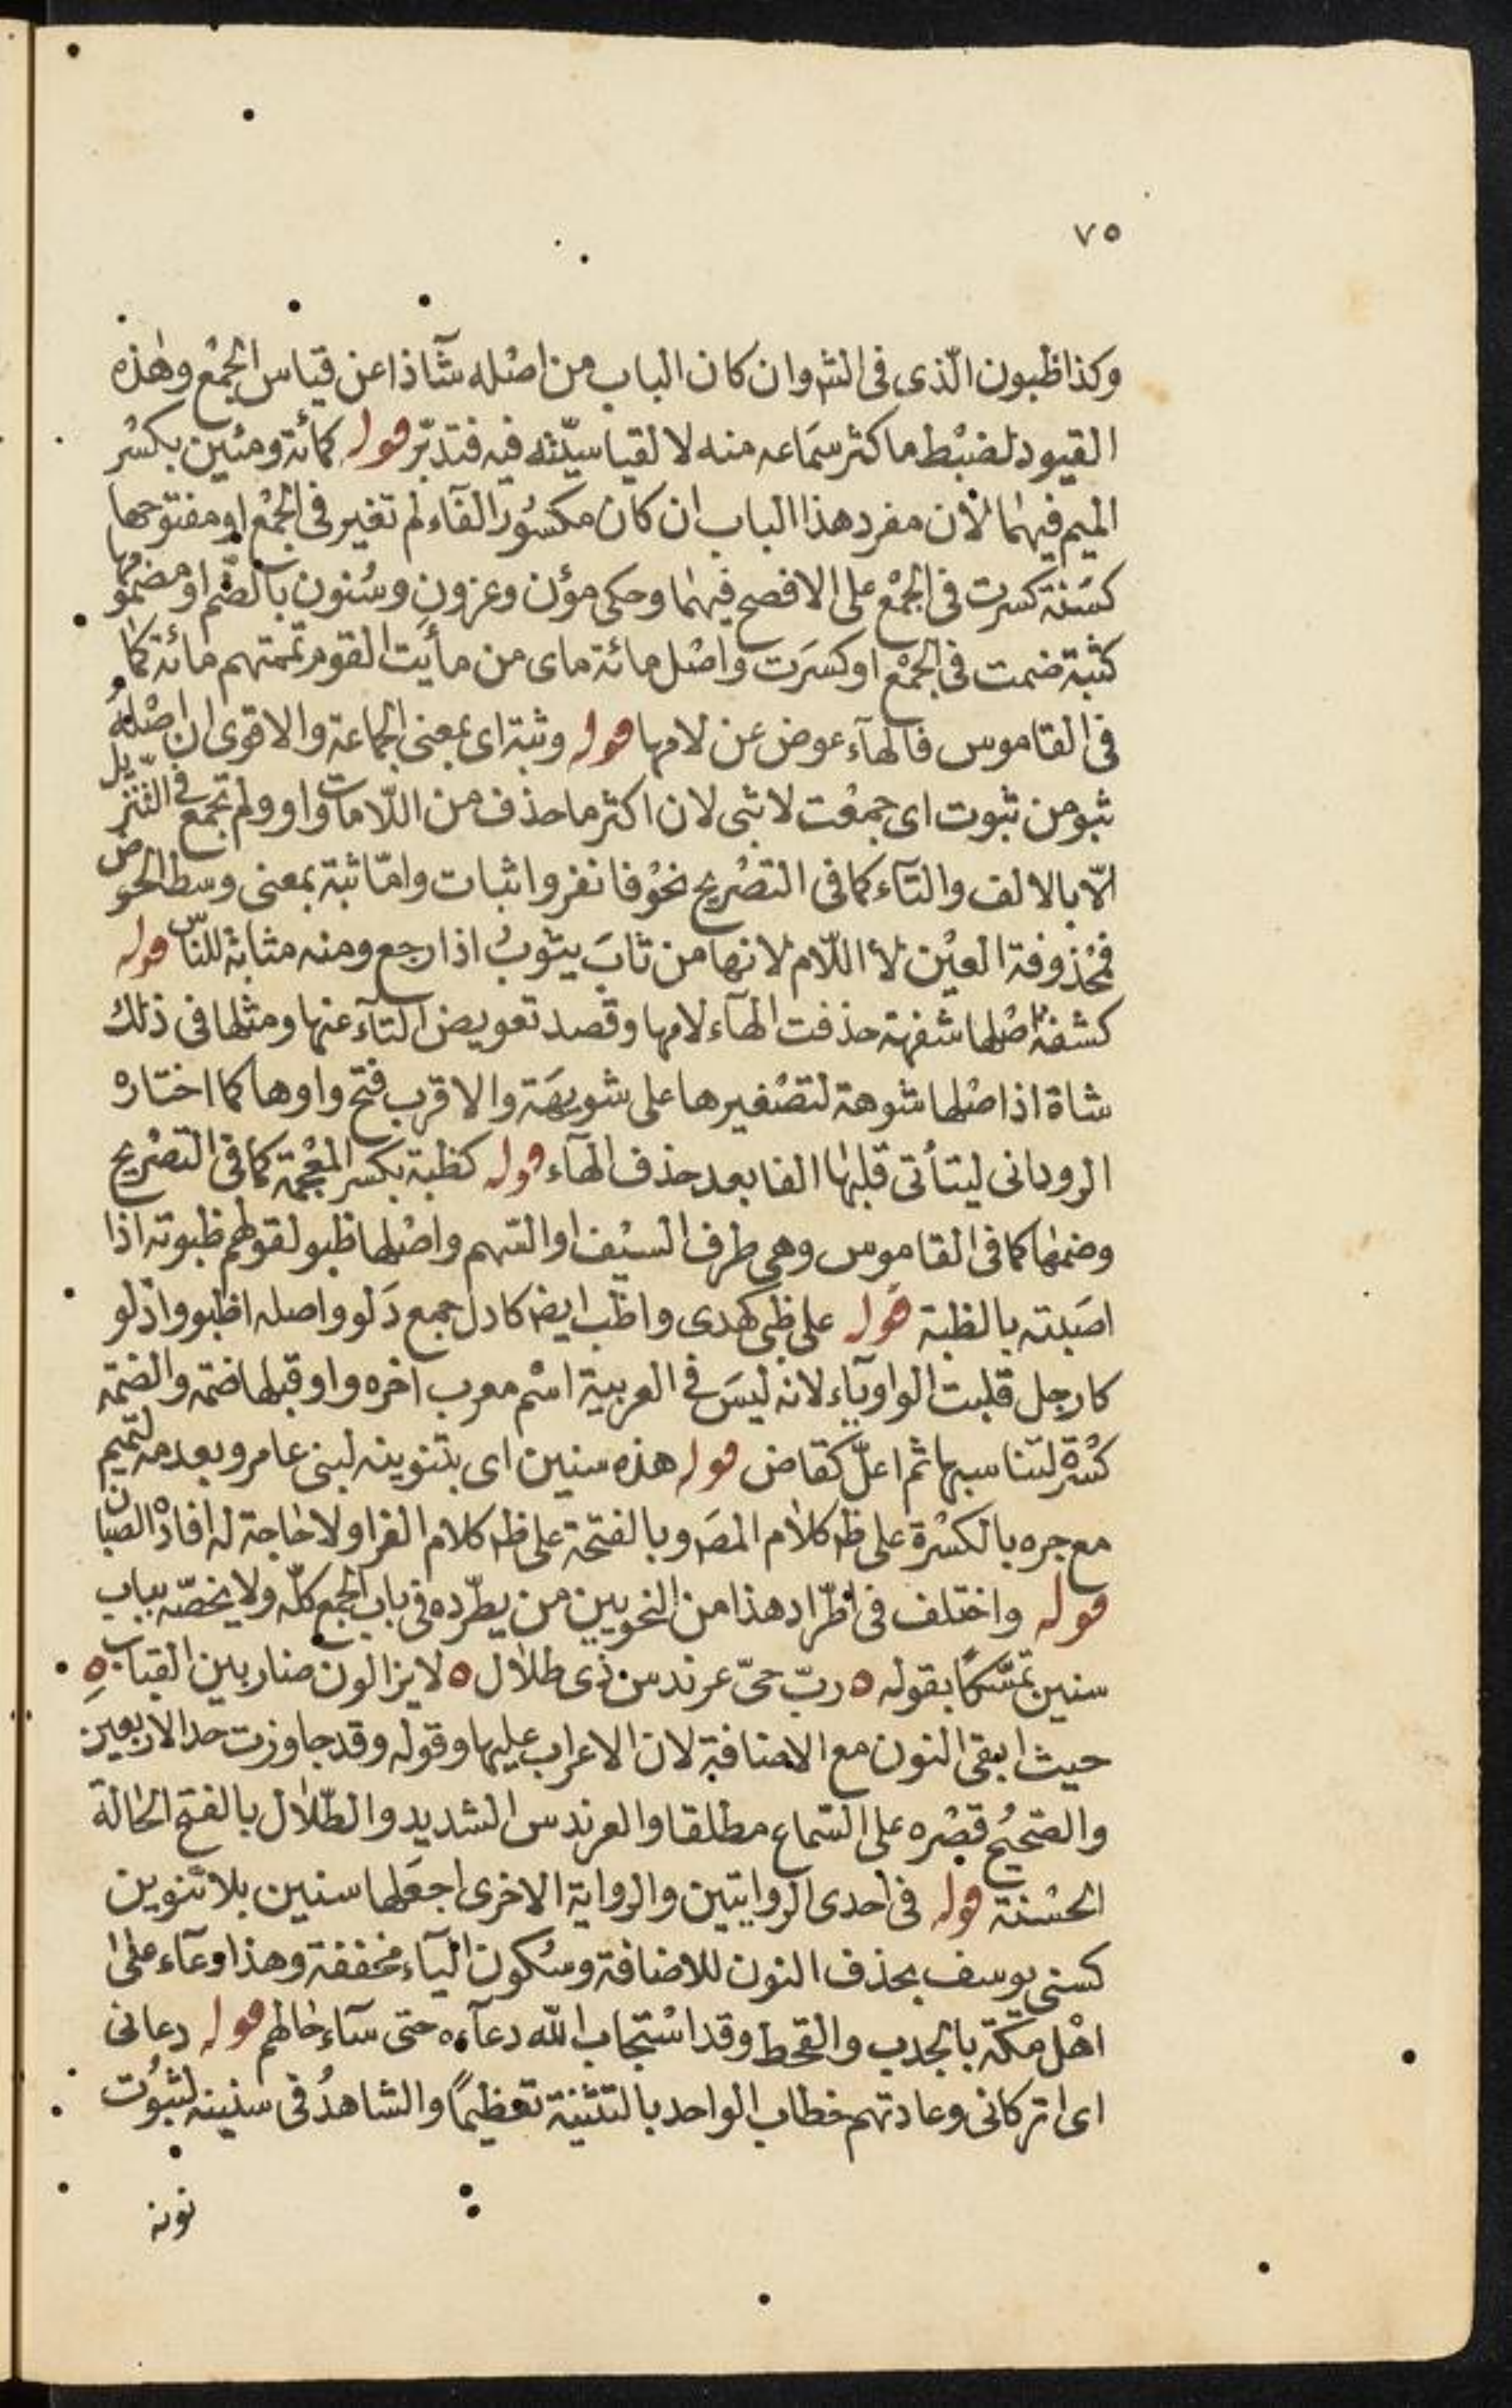 ٧٥
وكذا ظبون الّذى فى الشـ وان كان الباب من اصْله شآذا عن قياس الجمْع وهٰذه
القيود لضبْط ما كثر سمَاعه منه لا لقياسيّته فيه فتدبّر قوله كمائة ومئين بكسْر
الميم فيهمٰا لأن مفرد هذا الباب ان كان مكسُور الفآء لم تغير فى الجمْع او مفتوحها
كسَنة كسرت فى الجمْع على الافصح فيهمٰا وحكى مؤن وعزون وسُنون بالضّم او مضمُومها
كثبة ضمت فى الجمْع او كسَرت واصْل مائة ماى من مأيت القوم تممتهم مائة كمٰا
فى القاموس فالهآء عوض عن لامها قوله وثبة اى بمعنى الجماعة والاقوى ان اصْلهُ
ثبو من ثبوت اى جمعْت لا ثبى لان اكثر ما حذف من اللّامات واو ولم تجمع فى التنزيل
الّا بالالف والتآء كما فى التصْريح نحوْ فانفروا ثبات وامّا ثبة بمعنى وسط الحوض
فمحْذوفة العيْن لأ اللّام لانها من ثابَ يثوبُ اذا رجع ومنه مثابة للناس قوله
كشفة اصْلها شفهة حذفت الهآء لامها وقصد تعويض التآء عنها ومثلها فى ذلك
شاة اذ اصْلها شوهة لتصْغيرها على شويهَة والاقرب فتح واوها كما اختاره
الرودانى ليتأتى قلبهٰا الفا بعد حذف الهآء قوله كظبة بكسر المعْجمة كما فى التصْريح
وضمهٰا كما فى القاموس وهى طرف السيْف او السّهم واصْلها ظبو لقولهم ظبوته اذا
اصَبته بالظبة قوله على ظبى كهدى واظب ايضا كادل جمع دَلو واصله اظبو وادْلو
كارجل قلبت الواو يآء لانه ليسَ فى العربية اسْم معرب آخره واو قبلها ضمّة والضمّة
كسْرة لتناسبها ثم اعلّ كقاض قوله هذه سنين اى بتنوينه لبنى عامر وبعدمه لتميم
مع جره بالكسْرة على ظـ كلاٰم المصَـ وبالفتحة على ظـ كلام الفرا ولا حٰاجة له افادْه الصبان
قوله واختلف فى اطّراد هذا من النحويين من يطّرده فى باب الجمع كلّه ولا يخصّه بباب
سنين تمسّكًا بقوله ٥ ربّ حىّ عرندس ذى طلاٰل ٥ لا يزالون ضاربين القباب ٥
حيث ابقى النون مع الاضافة لان الاعراب عليها وقوله وقد جاوزت حد الاربعين
والصّحيحُ قصْره على السّماع مطلقا والعرندس الشديد والطّلاٰل بالفتح الحٰالة
الحسْنة قوله فى احدى الروايتين والرواية الاخرى اجعَلها سنين بلا تنوين
كسنى يوسف بحذف النون للاضافة وسُكون اليآء مخففة وهذا دعآء على
اهْل مكّة بالجدب والقحط وقد اسْتجاب اللّه دعآءه حتى سآء حٰالهم قوله دعانى
اى اتركانى وعادتهم خطاب الواحد بالتثنية تعْظيمًا والشاهدُ فى سنينه لثبوُت
نونه